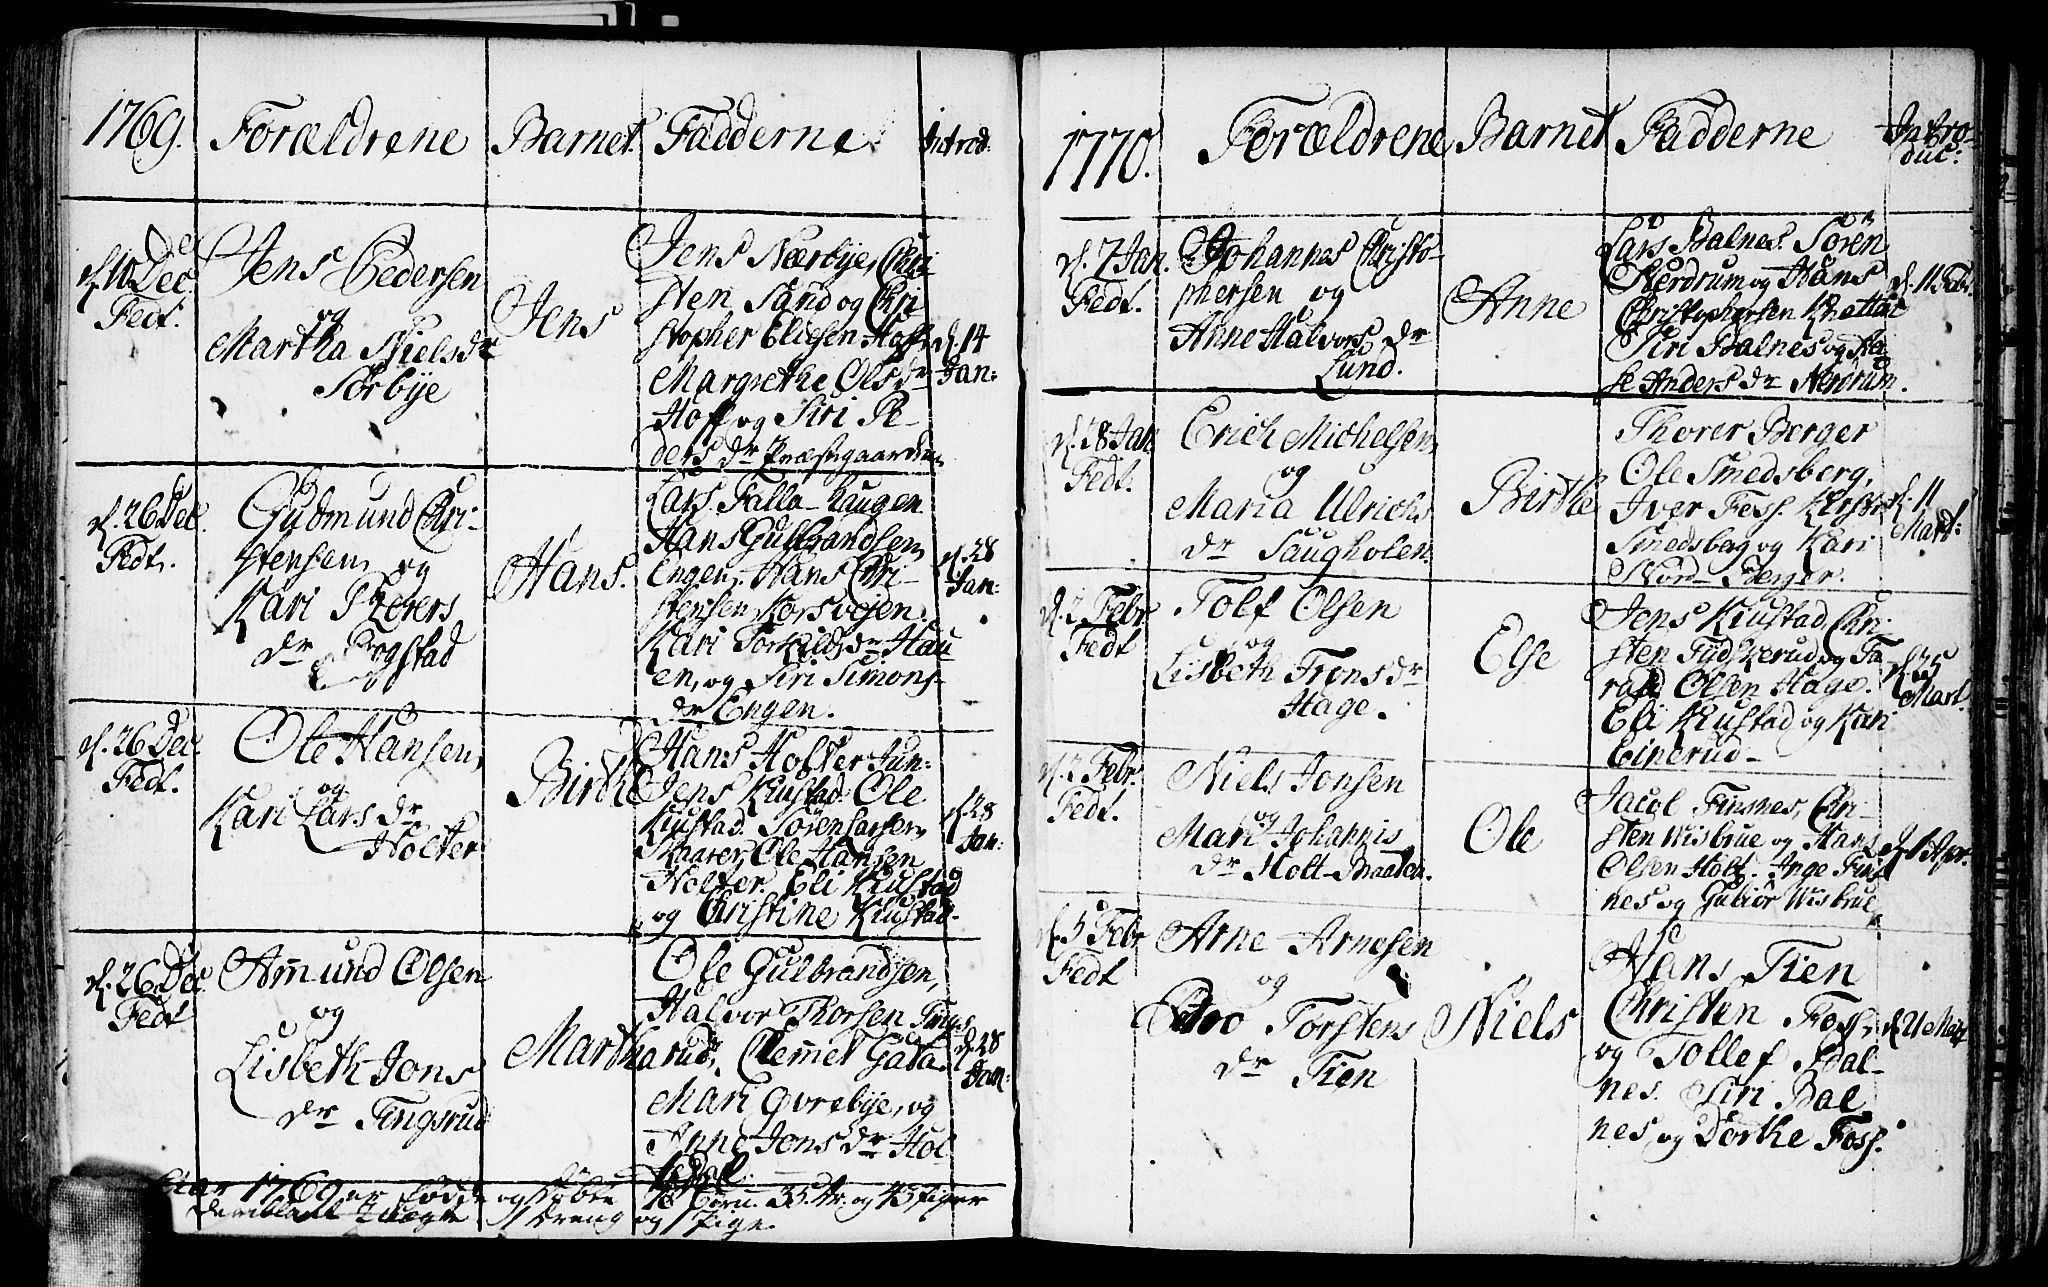 1769. Forældrene Barnet Fadderne Introd:
d. 10 Dec.
Fedt.
Jens Pedersen
og
Martha Niels dr
Sørbye
Jens
Jens Nærbye, Chri
sten Sand og Chri
stopher Eliesen Hoff
Margrethe Ols dr
Hoff og Siri Pe-
ders dr Præstgaarden
d. 14
Jan:
d. 26 Dec.
Fedt.
Gudmund Chri-
stensen, og
Kari Sivers
dr Fogstad
Hans.
Lars Falla-haugen
Hans Gulbrandsen
Engen, Hans Chri-
stensen Korsveien.
Kari Torkilds dr Hau
en, og Siri Simons-
dr Engen.
d. 28
Jan:
d. 26 Dec.
Fedt.
Ole Hansen,
og
Kari Lars dr
Holter
Birthe
Hans Holter Jun:
Jens Kiustad. Ole
Kiustad. Søren Larsen
Skaarer, Ole Hansen
Holter. Eli Kiustad
og Christine Kiustad-
d. 28
Jan:
d. 26 Dec
Fedt
Amund Olsen
og
Lisbeth Jons
dr Tingsrud
Martha
Ole Gulbrandsen,
Halvor Thorsen Tings
rud, Clemmet Gata.
Mari Øvrebye, og
Anne Jons dr Hol-
tedal.
d. 28
Jan:
1769 er fødde og døbte 78 Børn. 35 Dr. og 43 Piger
deriblant 2 uægte 1 dreng og 1 Pige.
1770. Forældrene Barnet Fadderne Intro-
duc:
d. 7 Jan.
Fedt.
Johannes Christo-
phersen og
Anne Halvors dr
Lund.
Anne
Lars Balnes. Søren
Nerdrum og Hans
Christophersen Knatten
Siri Balnes og Aa
se Anders dr Nerdrum.
d. 11 Febr.
d. 18 Jan
Fedt.
Erich Michelsen
og
Maria Ulrichs
dr Saugholen.
Birthe
Thorer Berger
Ole Smedsberg,
Iver Foss. Kirstie
Smedsberg og Kari
Nord-Berger.
d. 11
Mart:
d. 2 Febr
Fedt
Tolf Olsen
og
Lisbeth Trons dr
Hage.
Else
Jens Kiustad, Chri-
sten Tydskerud og Ta
rald Olsen Hage.
Eli Kiustad og Kari
Einerud-
d. 25
Mart.
d. 2 Febr
Fedt.
Niels Jonsen
og
Mari Johannis
dr Holt-Braaten.
Ole
Jacob Finsnes, Chri-
sten Wisbrue og Hans
Olsen Holt. Inge Fins
nes og Gubiør Wisbrue
d. 1 Apr.
d. 5 Febr
Fedt
Arne Arnesen
og
Torstens
dr Tien
Niels
Hans Tien
Christen Foss,
og Tollef Idal-
nes. Siri Bal
nes og Dorthe Foss.
d. 21 Mart